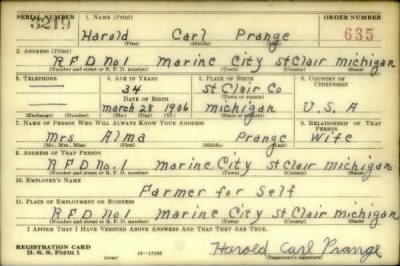 SERIAL NUMBER 1. NAME (Print) ORDER NUMBER
3219 Harold Carl Prange 635
(First) (Middle) (Last)
2. ADDRESS (Print)
RFD No1 Marine City St Clair michigan
(Number and street or R. F. D. number) (Town) (County) (State)
3. TELEPHONE 4. AGE IN YEARS 5. PLACE OF BIRTH 6. COUNTRY OF CITIZENSHIP
34 St Clair Co
DATE OF BIRTH
march 28 1906 michigan U.S.A
(Exchange) (Number) (Mo.) (Day) (Yr.) (State or country)
7. NAME OF PERSON WHO WILL ALWAYS KNOW YOUR ADDRESS 8. RELATIONSHIP OF THAT PERSON
Mrs Alma Prange Wife
(Mr., Mrs., Miss) (First) (Middle) (Last)
9. ADDRESS OF THAT PERSON
RFD No.1 Marine City St Clair michigan
(Number and street or R. F. D. number) (Town) (County) (State)
10. EMPLOYER'S NAME
Farmer for Self
11. PLACE OF EMPLOYMENT OR BUSINESS
RFD No1 Marine City St Clair michigan
(Number and street or R. F. D. number) (Town) (County) (State)
I AFFIRM THAT I HAVE VERIFIED ABOVE ANSWERS AND THAT THEY ARE TRUE.
REGISTRATION CARD
D. S. S. Form 1 (over) 16-17105 Harold Carl Prange
(Registrant's signature)